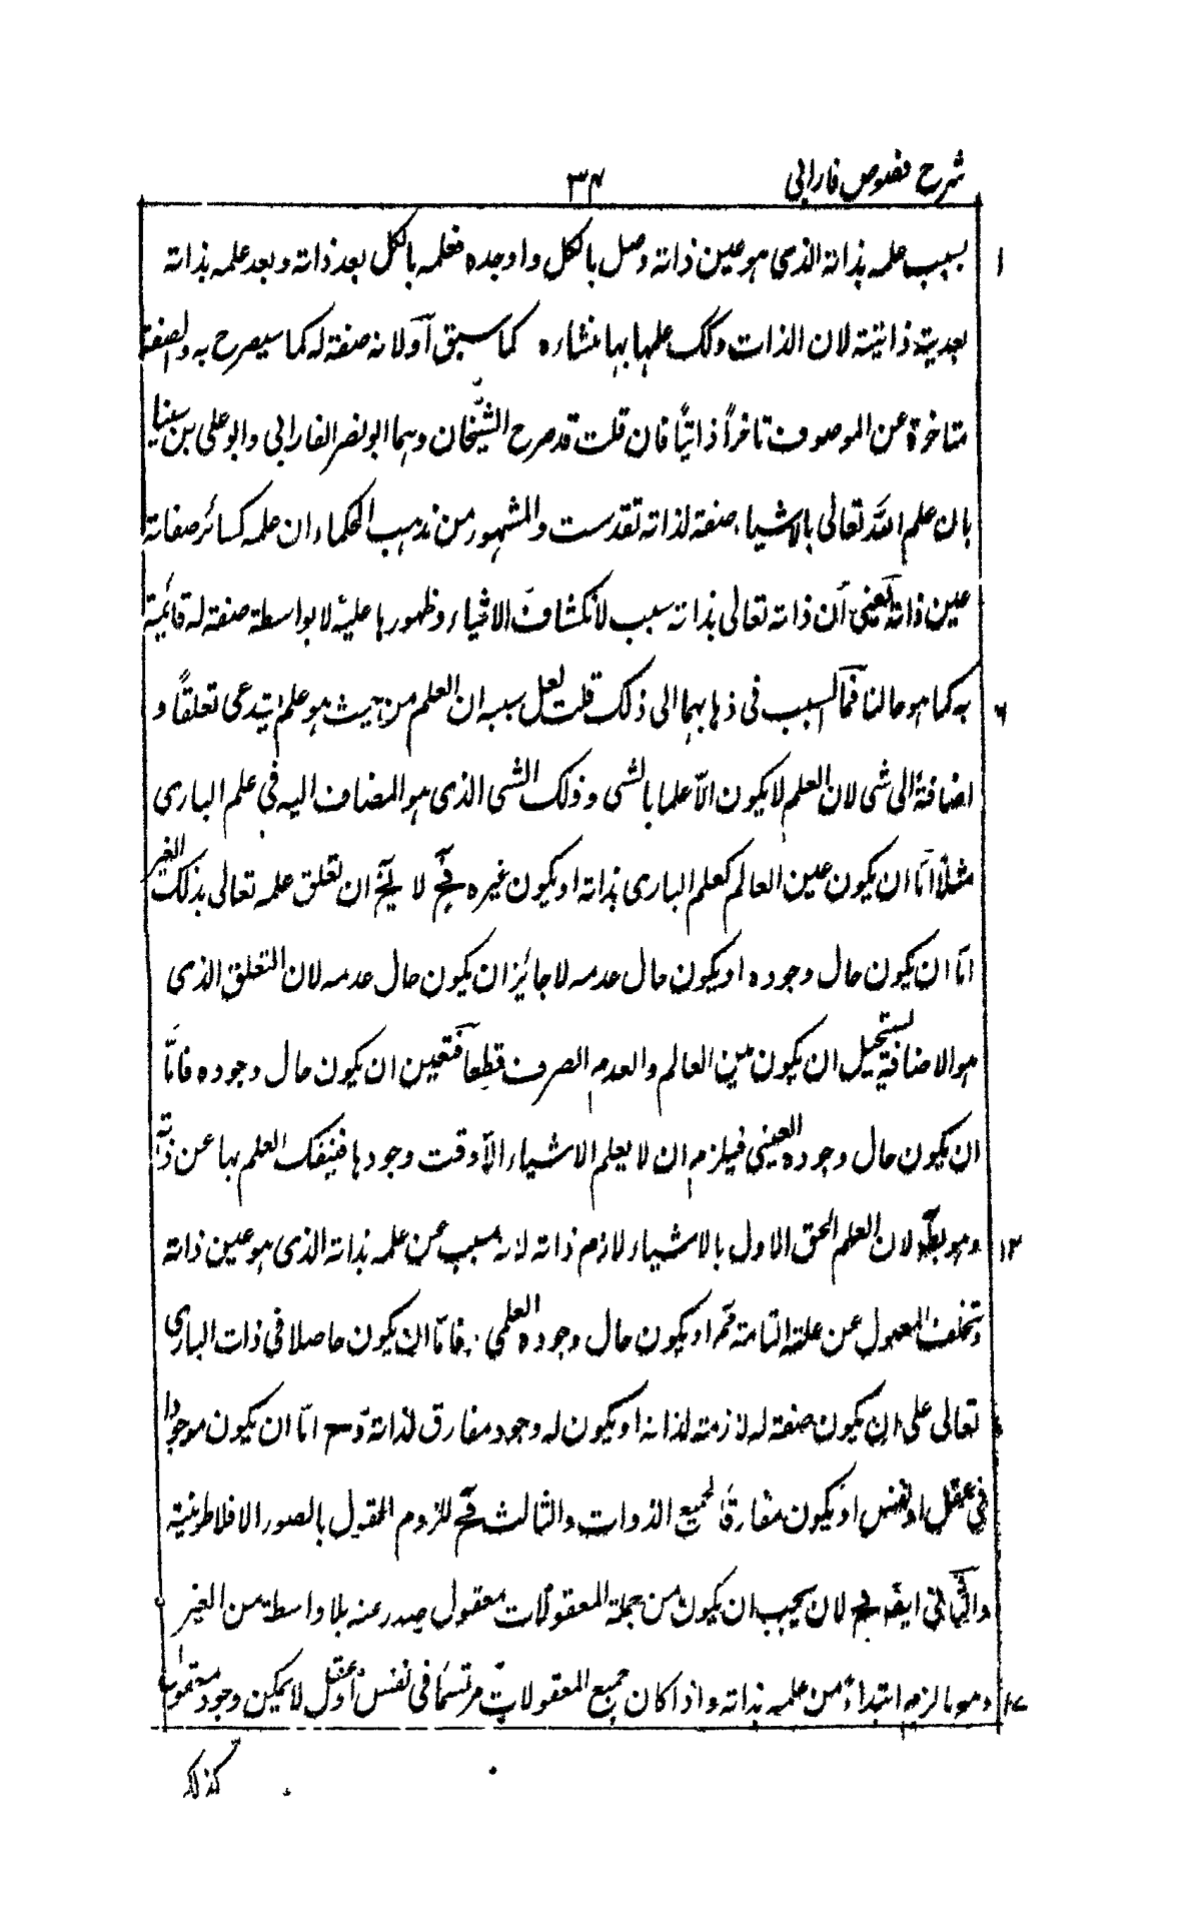 شرح فصوص فارابی
٣٤
١ بسبب علمه بذاته الذى هو عين ذاته وصل بالكل واوجده فعلمه بالكل بعد ذاته وبعد علمه بذاته
بعدية ذاتية لان الذات وكك علمها بها منشاءه كما سبق اولانه صفة له كما سيصرح به والصفة
متاخرة عن الموصوف تاخراً ذاتياً فان قلت قد صرح الشيخان وهما ابو نصر الفارابى وابو على بن سينا
بان علم الله تعالى بالاشياء صفة لذاته تقدست والمشهور من مذهب الحكماء ان علمه كسائر صفاته
عين ذاته بمعنى ان ذاته تعالى بذاته سبب لانكشاف الاشياء وظهورها عليه لا بواسطة صفة له قائمة
٦ به كما هو حالنا فما السبب فى ذهابهما الى ذلك قلت لعل سببه ان العلم من حيث هو علم يتدعى تعلقاً و
اضافة الى شى لان العلم لا يكون الّا علما بالشى وذلك الشى الذى هو المضاف اليه فى علم البارى
مثلاً امّا ان يكون عين العالم كعلم البارى بذاته او يكون غيره فح لا يخ ان تعلق علمه تعالى بذلك الغير
امّا ان يكون حال وجوده او يكون حال عدمه لا جائز ان يكون حال عدمه لان التعلق الذى
هو الاضافة يستحيل ان يكون بين العالم والعدم الصرف قطعاً فتعين ان يكون حال وجوده فامّا
ان يكون حال وجوده العينى فيلزم ان لا يعلم الاشياء الّا وقت وجودها فينفك العلم بها عن ذاته
١٢ وهو بط لان العلم الحق الاول بالاشياء لازم ذاته لانه مسبب عن علمه بذاته الذى هو عين ذاته
وتخلف المعلول عن علته التامة مح او يكون حال وجوده العلمى فامّا ان يكون حاصلا فى ذات البارى
تعالى على ان يكون صفة له لازمة لذاته او يكون له وجود مفارق لذاته وح امّا ان يكون موجودا
فى عقل او نفس او يكون مفارقاً لجميع الذوات والثالث مح للزوم القول بالصور الافلاطونية
والثانى ايضا مح لان يجب ان يكون من جملة المعقولات معقول صدر عنه بلا واسطة من الغير
١٧ وهو ما لزمه ابتداءً من علمه بذاته واذا كان جميع المعقولات مرتسمًا فى نفس او عقل لا يمكن وجود معقولات
كذلك